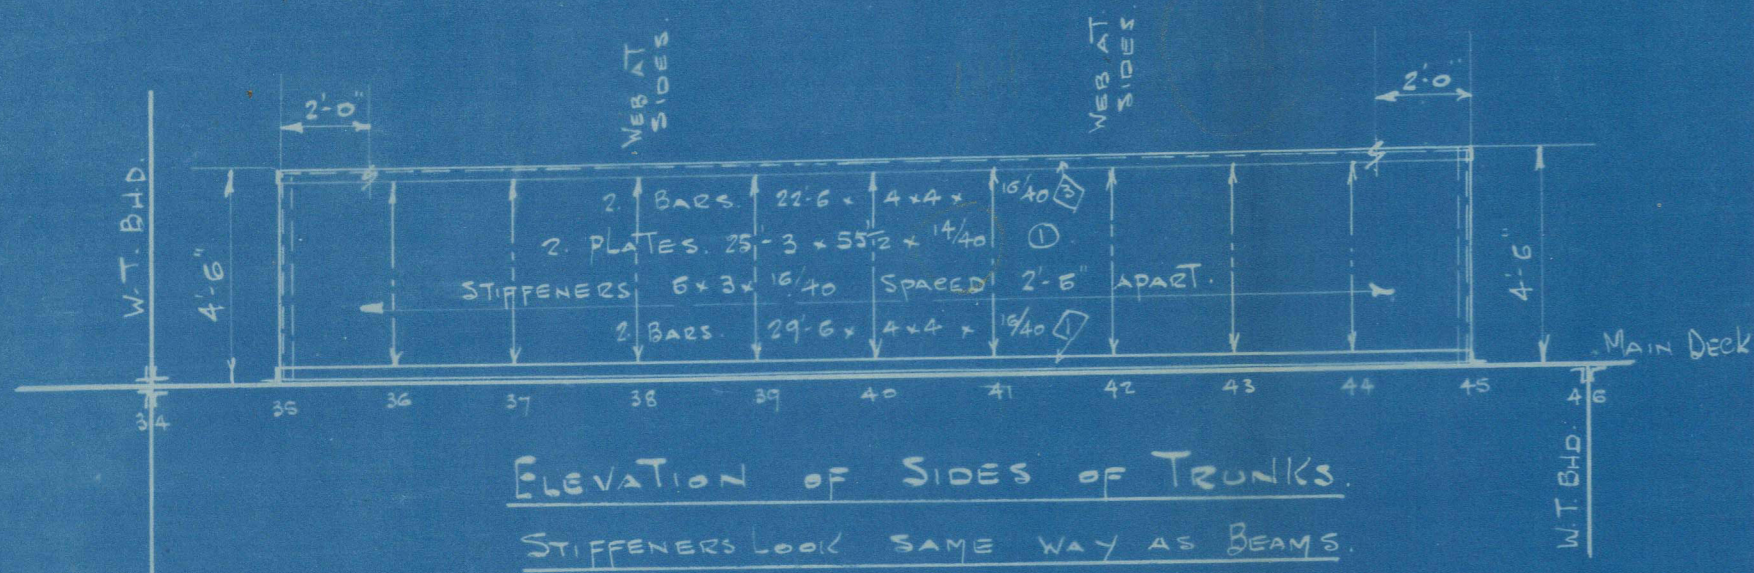 WEB AT
SIDES.
WEB AT
SIDES.
2'-0"
2'-0"
W.T. BHD.
4'-6"
2. BARS. 22'-6 × 4×4× 16/40 3
2. PLATES. 25'-3 × 55 1/2 × 14/40 1
STIFFENERS 6×3× 16/40 SPACED 2'-6" APART.
2. BARS. 29'-6 × 4×4 × 16/40 1
4'-6"
MAIN DECK
34 35 36 37 38 39 40 41 42 43 44 45 46
W.T. BHD.
ELEVATION OF SIDES OF TRUNKS.
STIFFENERS LOOK SAME WAY AS BEAMS.